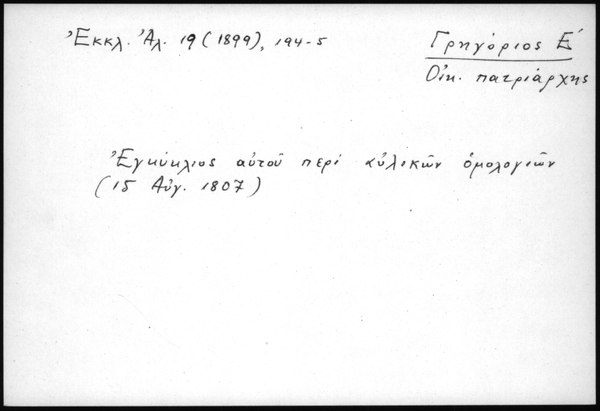 Ἐκκλ. Ἀλ. 19 (1899), 194-5
Γρηγόριος Ε´
Οἰκ. πατριάρχης
Ἐγκύκλιος αὐτοῦ περί αὐλικῶν ὁμολογιῶν
(15 Αὐγ. 1807)